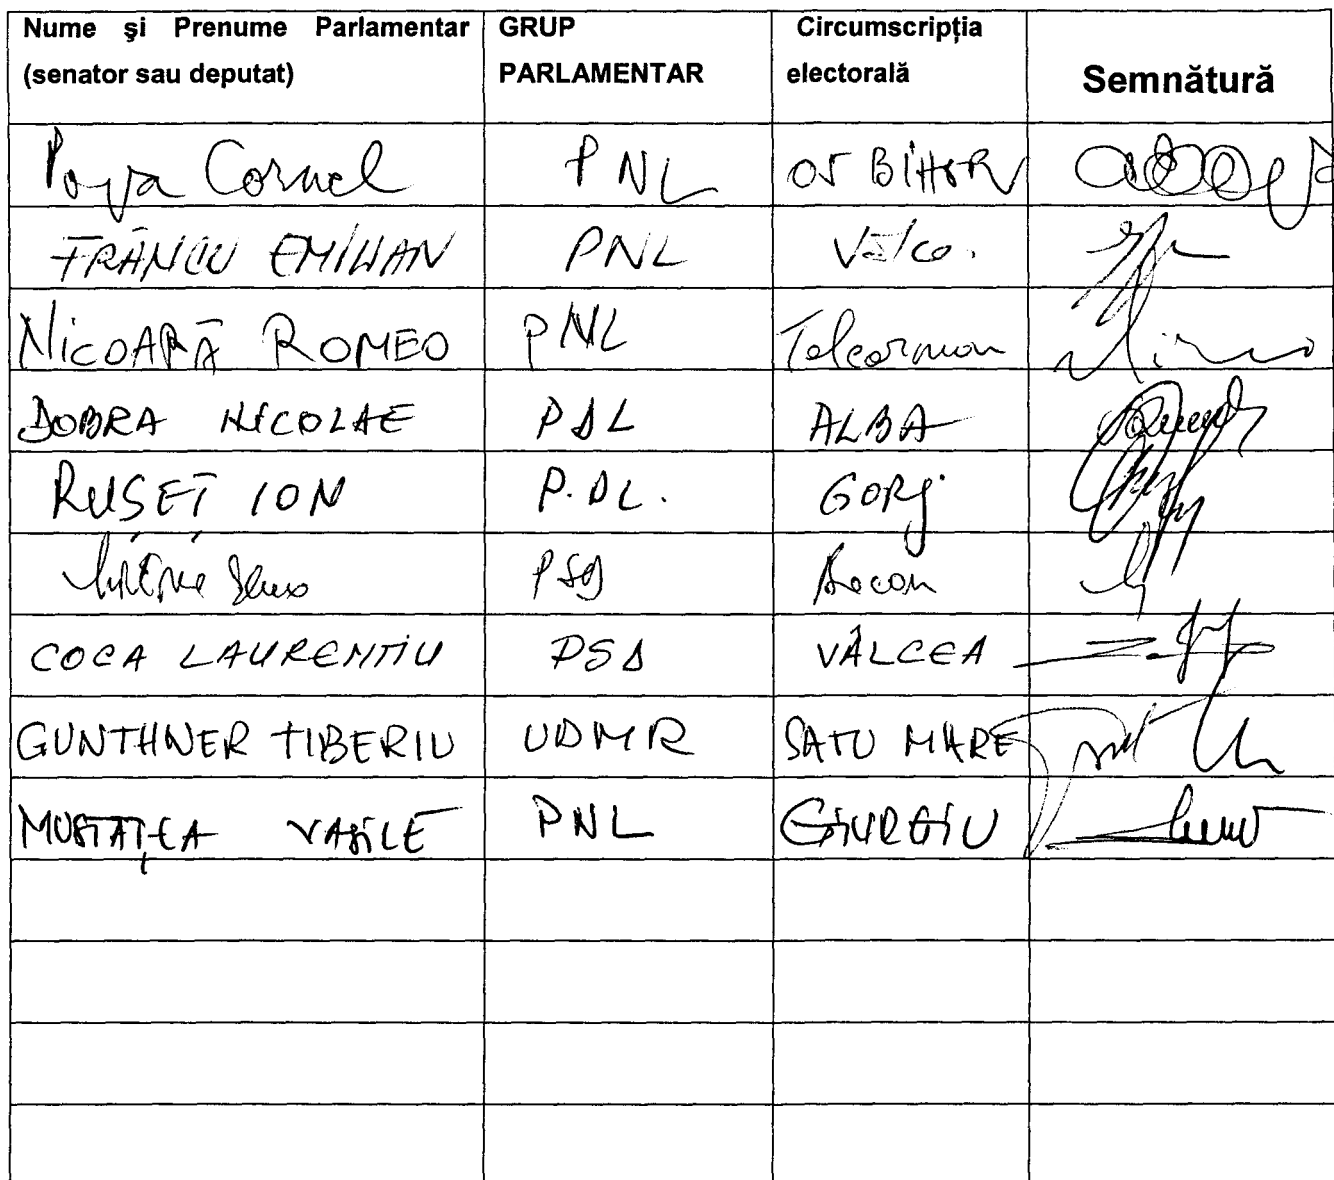 Nume și Prenume Parlamentar (senator sau deputat)
GRUP PARLAMENTAR
Circumscripția electorală
Semnătură
Popa Cornel PNL 05 BIHOR
FRÂNCU EMILIAN PNL
NICOARĂ ROMEO PNL Teleorman
DOBRA NICOLAE PDL ALBA
RUSEȚ ION P.DL. GORJ
PSD Bacau
COCA LAURENȚIU PSD VÂLCEA
GUNTHNER TIBERIU UDMR SATU MARE
MUSTAȚEA VASILE PNL GIURGIU